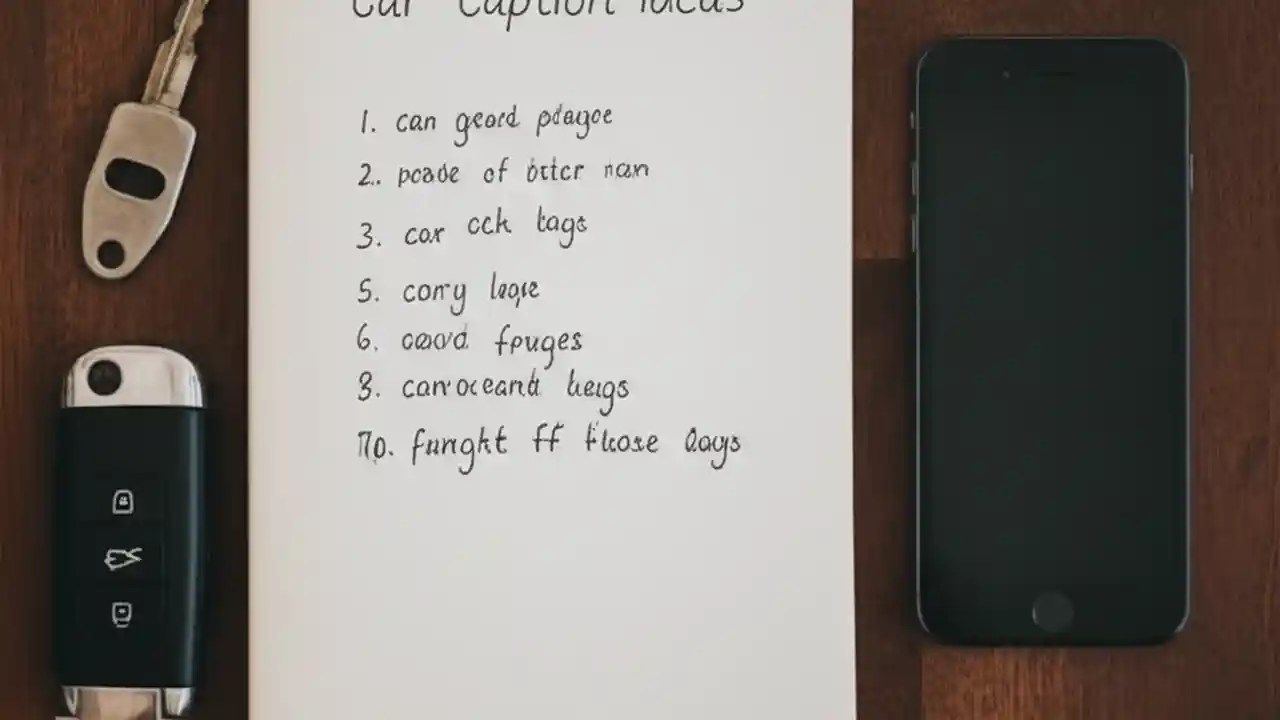 Car Caption Ideas
1. can geard pdagce
2. poade of bitcr nan
3. car cch tags
5. corry lage
6. cawd fpuges
8. carroceard beags
10. funght ff those days